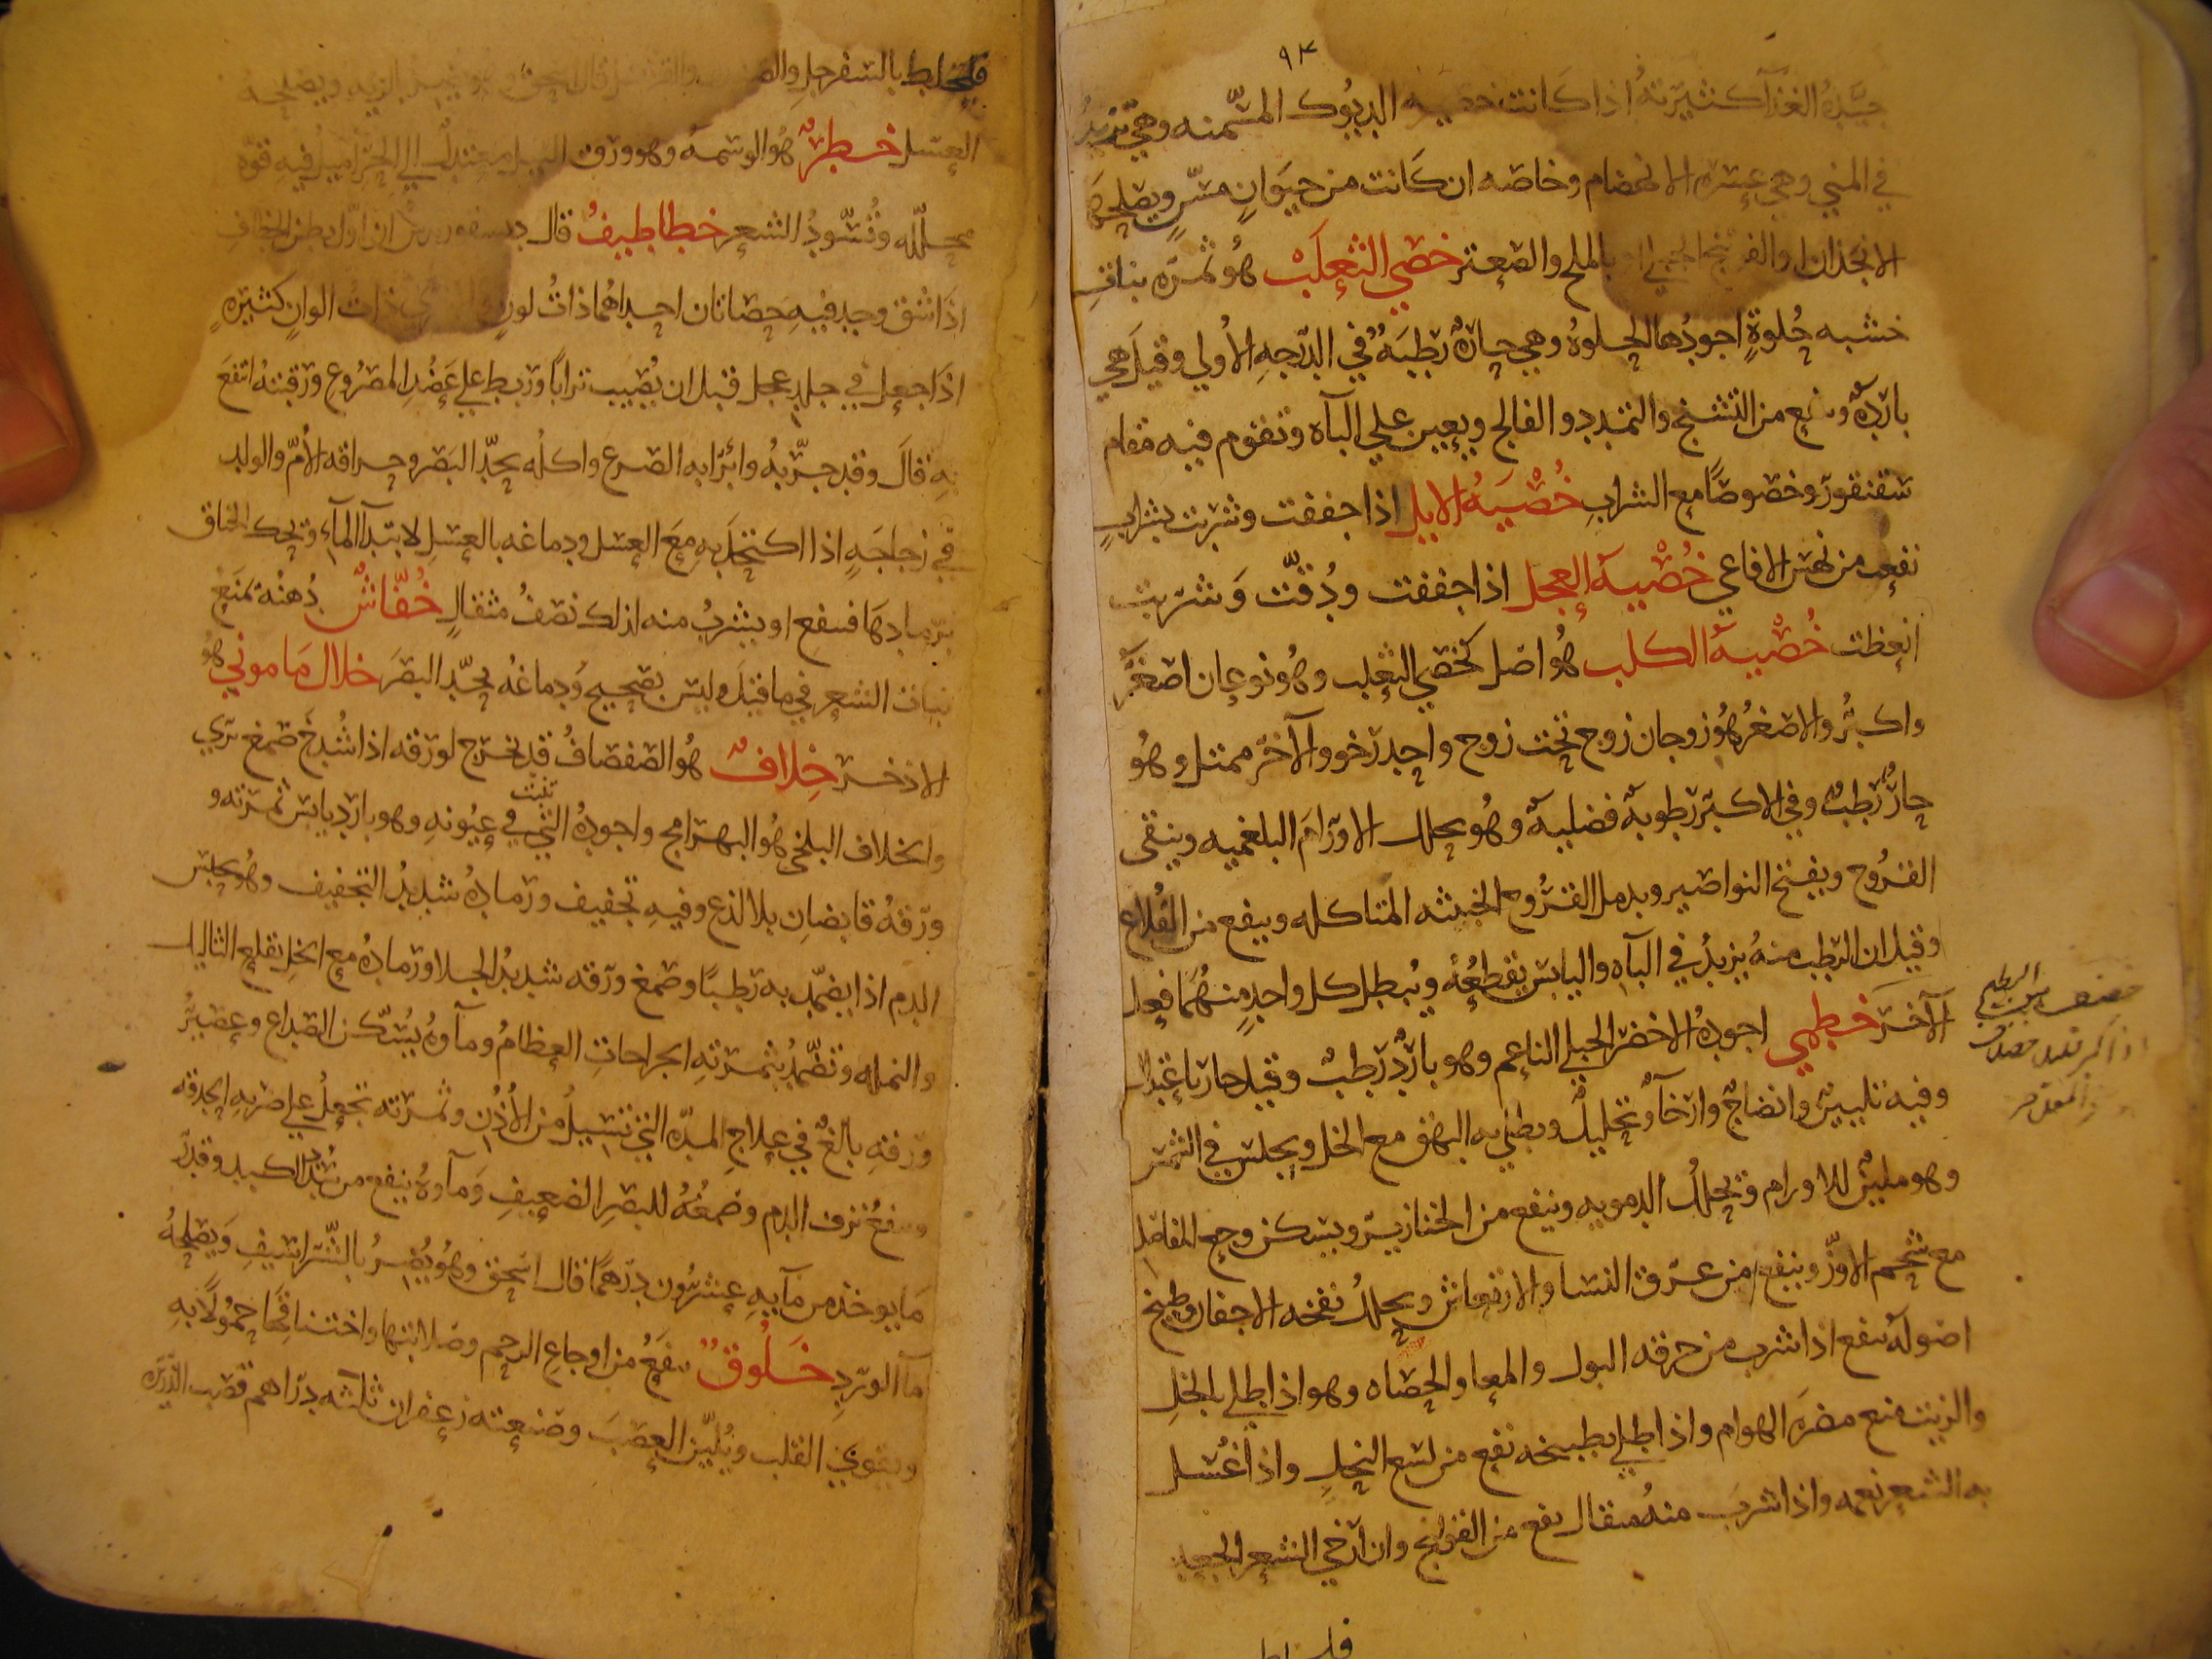 ٩٣
جيدة الغذآ كثيرته اذا كانت خصيه الديوك المسمنه وهي تزيد
في المني وهي عسره الانهضام وخاصه ان كانت من حيوان مسن ويصلحها
الانجذان والفوتنج الجبلي او بالملح والصعتر خصي الثعلب هو ثمره بنات
خشبه حلوة اجودها الحلوة وهي حارة رطبة في الدرجه الاولي وقيل هي
باردة وينفع من التشنج والتمدد والفالج ويعين علي الباه وتقوم فيه مقام
سقنقور وخصوصا مع الشراب خصيه الايل اذا جففت وشربت بشراب
نفعت من نهش الافاعي خصيه العجل اذا جففت ودقت وشربت
انعظت خصيه الكلب هو اصل كخصي الثعلب وهو نوعان اصغر
واكبر والاصغر هو زوجان زوج تحت زوج واحد رخو والآخر ممتلي وهو
حار رطب وفي الاكبر رطوبة فضلية وهو يحلل الاورام البلغميه وينقي
القروح ويفتح النواصير ويدمل القروح الخبيثه المتاكله وينفع من القلاع
وقيل ان الرطب منه يزيد في الباه واليابس يقطعه ويبطل كل واحد منهما فعل
الآخر خطمي اجوده الاخضر الجبلي الناعم وهو بارد رطب وقيل حار باعتدال
وفيه تليين وانضاج وارخآ وتحليل ويطلي به البهق مع الخل ويجلس في الشمس
وهو ملين للاورام وتحلل الدمويه وينفع من الخنازير ويسكن وجع المفاصل
مع شحم الاوز وينفع من عرق النسا والارتعاش ويحلل نفخه الاجفان وطبيخ
اصوله ينفع اذا شرب من حرقه البول والمعا والحصاه وهو اذا طلي بالخل
والزيت منع مضره الهوام واذا طلي بطبيخه نفع من لسع النحل واذا غسل
به الشعر نعمه واذا شرب منه مثقال نفع من القولنج وان ارخي الشعر الجعد
فليخلط بالسفرجل قال اسحق
العسل خطر هو الوسمه وهو ورق النيل معتدل الي الحر اميل فيه قوة
محللة وتسود الشعر خطاطيف قال ديسقوريدس ان اول بطن الخطاف
اذا شق وجد فيه حصاتان احداهما ذات لون ذات الوان كثيره
اذا جعل في جلد عجل قبل ان يصيب ترابا وربط علي عضد المصروع ورقبته انتفع
به قال وقد جربه وابرا به الصرع واكله يحد البصر وحراقه الام والولد
في زجاجه اذا اكتحل به مع العسل ودماغه بالعسل لابتدآ المآء وتحنك الخناق
برمادها فينفع او يشرب منه لذلك نصف مثقال خفاش دهنه تمنع
نبات الشعر في ما قيل وليس بصحيح ودماغه يحد البصر خلال ماموني هو
الاذخر خلاف هو الصفصاف قد يخرج لورقه اذا شدخ صمغ تري
والخلاف البلخي هو البهرامج واجوده التي تنبت في عيونه وهو بارد يابس ثمرته و
ورقه قابضان بلا لذع وفيه تجفيف ورماده شديد التجفيف وهو يحبس
الدم اذا يضمد به رطبا وصمغ ورقه شديد الجلا ورماده مع الخل تقلع الثاليل
والنمله وتضمد بثمرته الجراحات العظام ومآوه يسكن الصداع وعصير
ورقه بالغ في علاج المده التي تسيل من الاذن وثمرته تجعل علي ضربه الحدقه
وينفع نزف الدم وصمغه للبصر الضعيف ومآوه ينفع من سدد الكبد وقدر
ما يوخذ من مآيه عشرون درهما قال اسحق وهو يضر بالشراسيف ويصلحه
مآ الورد خلوق ينفع من اوجاع الرحم وصلابتها واختناقها حمولا به
ويقوي القلب ويلين العصب وصنعته زعفران ثلثه دراهم قصب الذريره